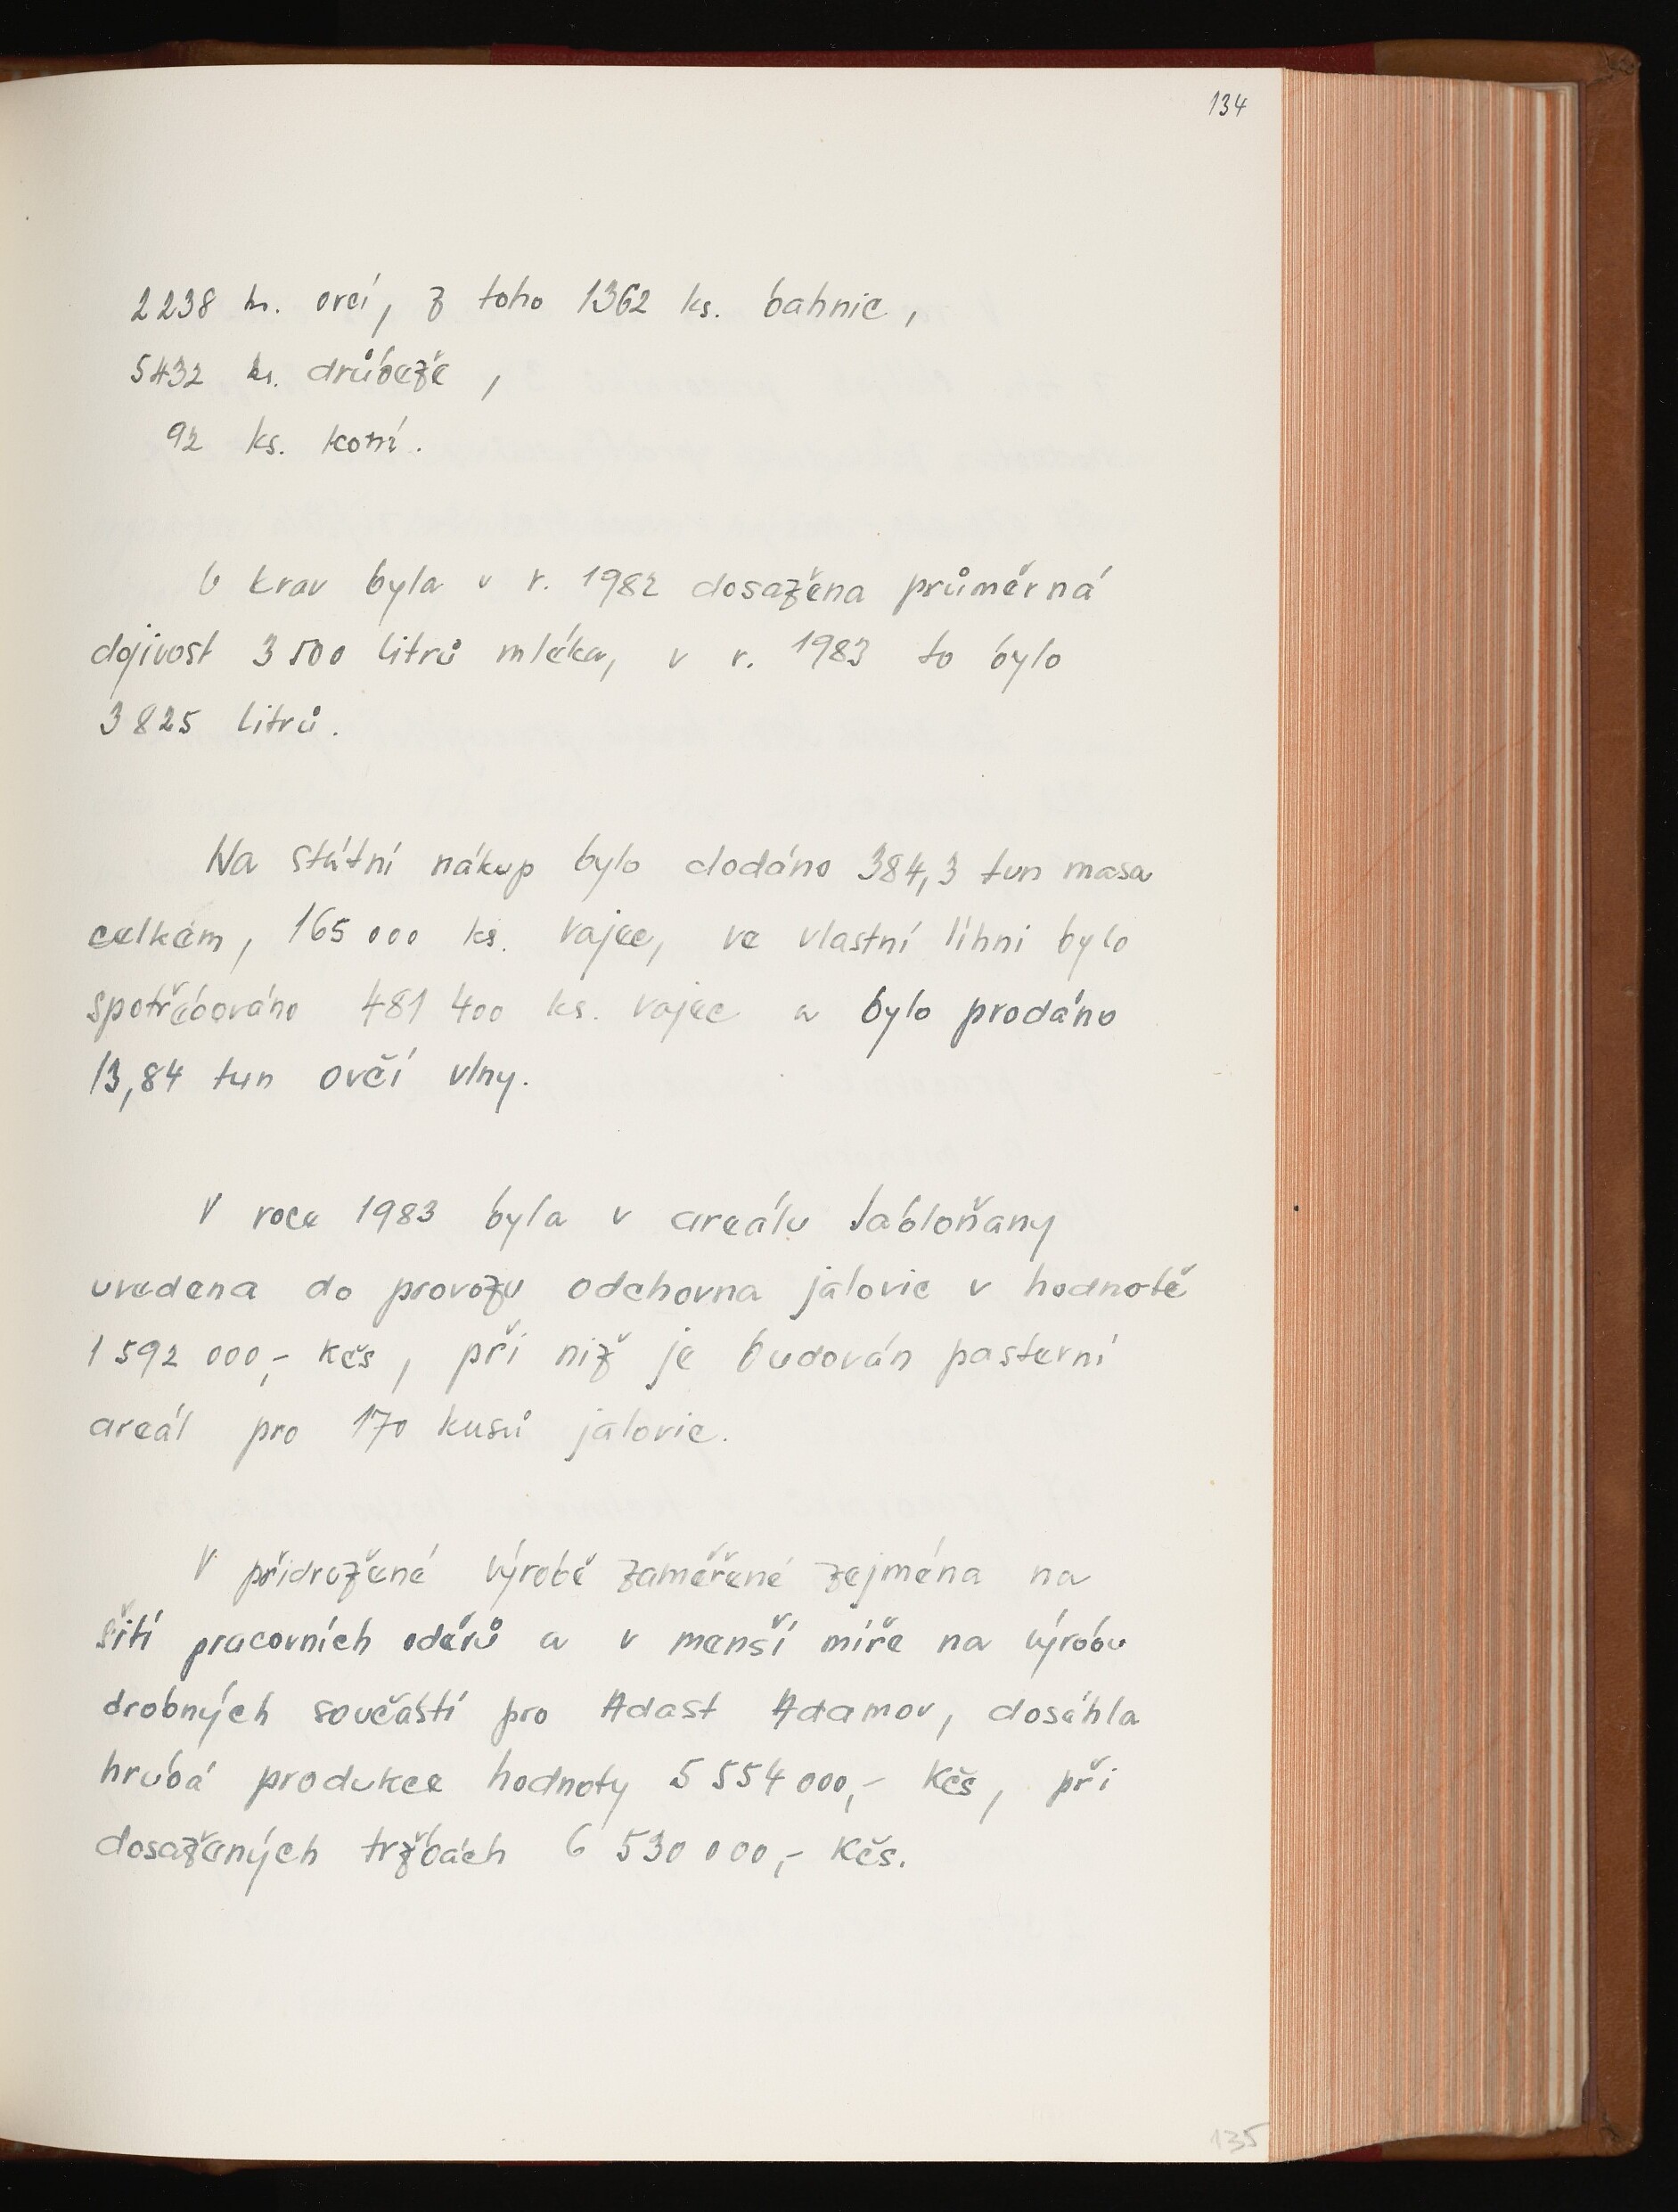 134
2238 ks. ovcí, z toho 1362 ks. bahnic,
5432 ks. drůbeže,
92 ks. koní.
U krav byla v r. 1982 dosažena průměrná
dojivost 3 500 litrů mléka, v r. 1983 to bylo
3 825 litrů.
Na státní nákup bylo dodáno 384,3 tun masa
celkem, 165 000 ks. vajec, ve vlastní líhni bylo
spotřebováno 481 400 ks. vajec a bylo prodáno
13,84 tun ovčí vlny.
V roce 1983 byla v areálu Jabloňany
uvedena do provozu odchovna jalovic v hodnotě
1 592 000,- Kčs, při níž je budován pastevní
areál pro 170 kusů jalovic.
V přidružené výrobě zaměřené zejména na
šití pracovních oděvů a v menší míře na výrobu
drobných součástí pro Adast Adamov, dosáhla
hrubá produkce hodnoty 5 554 000,- Kčs, při
dosažených tržbách 6 530 000,- Kčs.
135